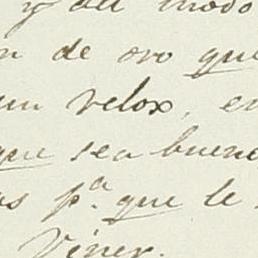 y del modo
n de oro que
un velox, en
que sea buene
as p.ª que le
Viner.